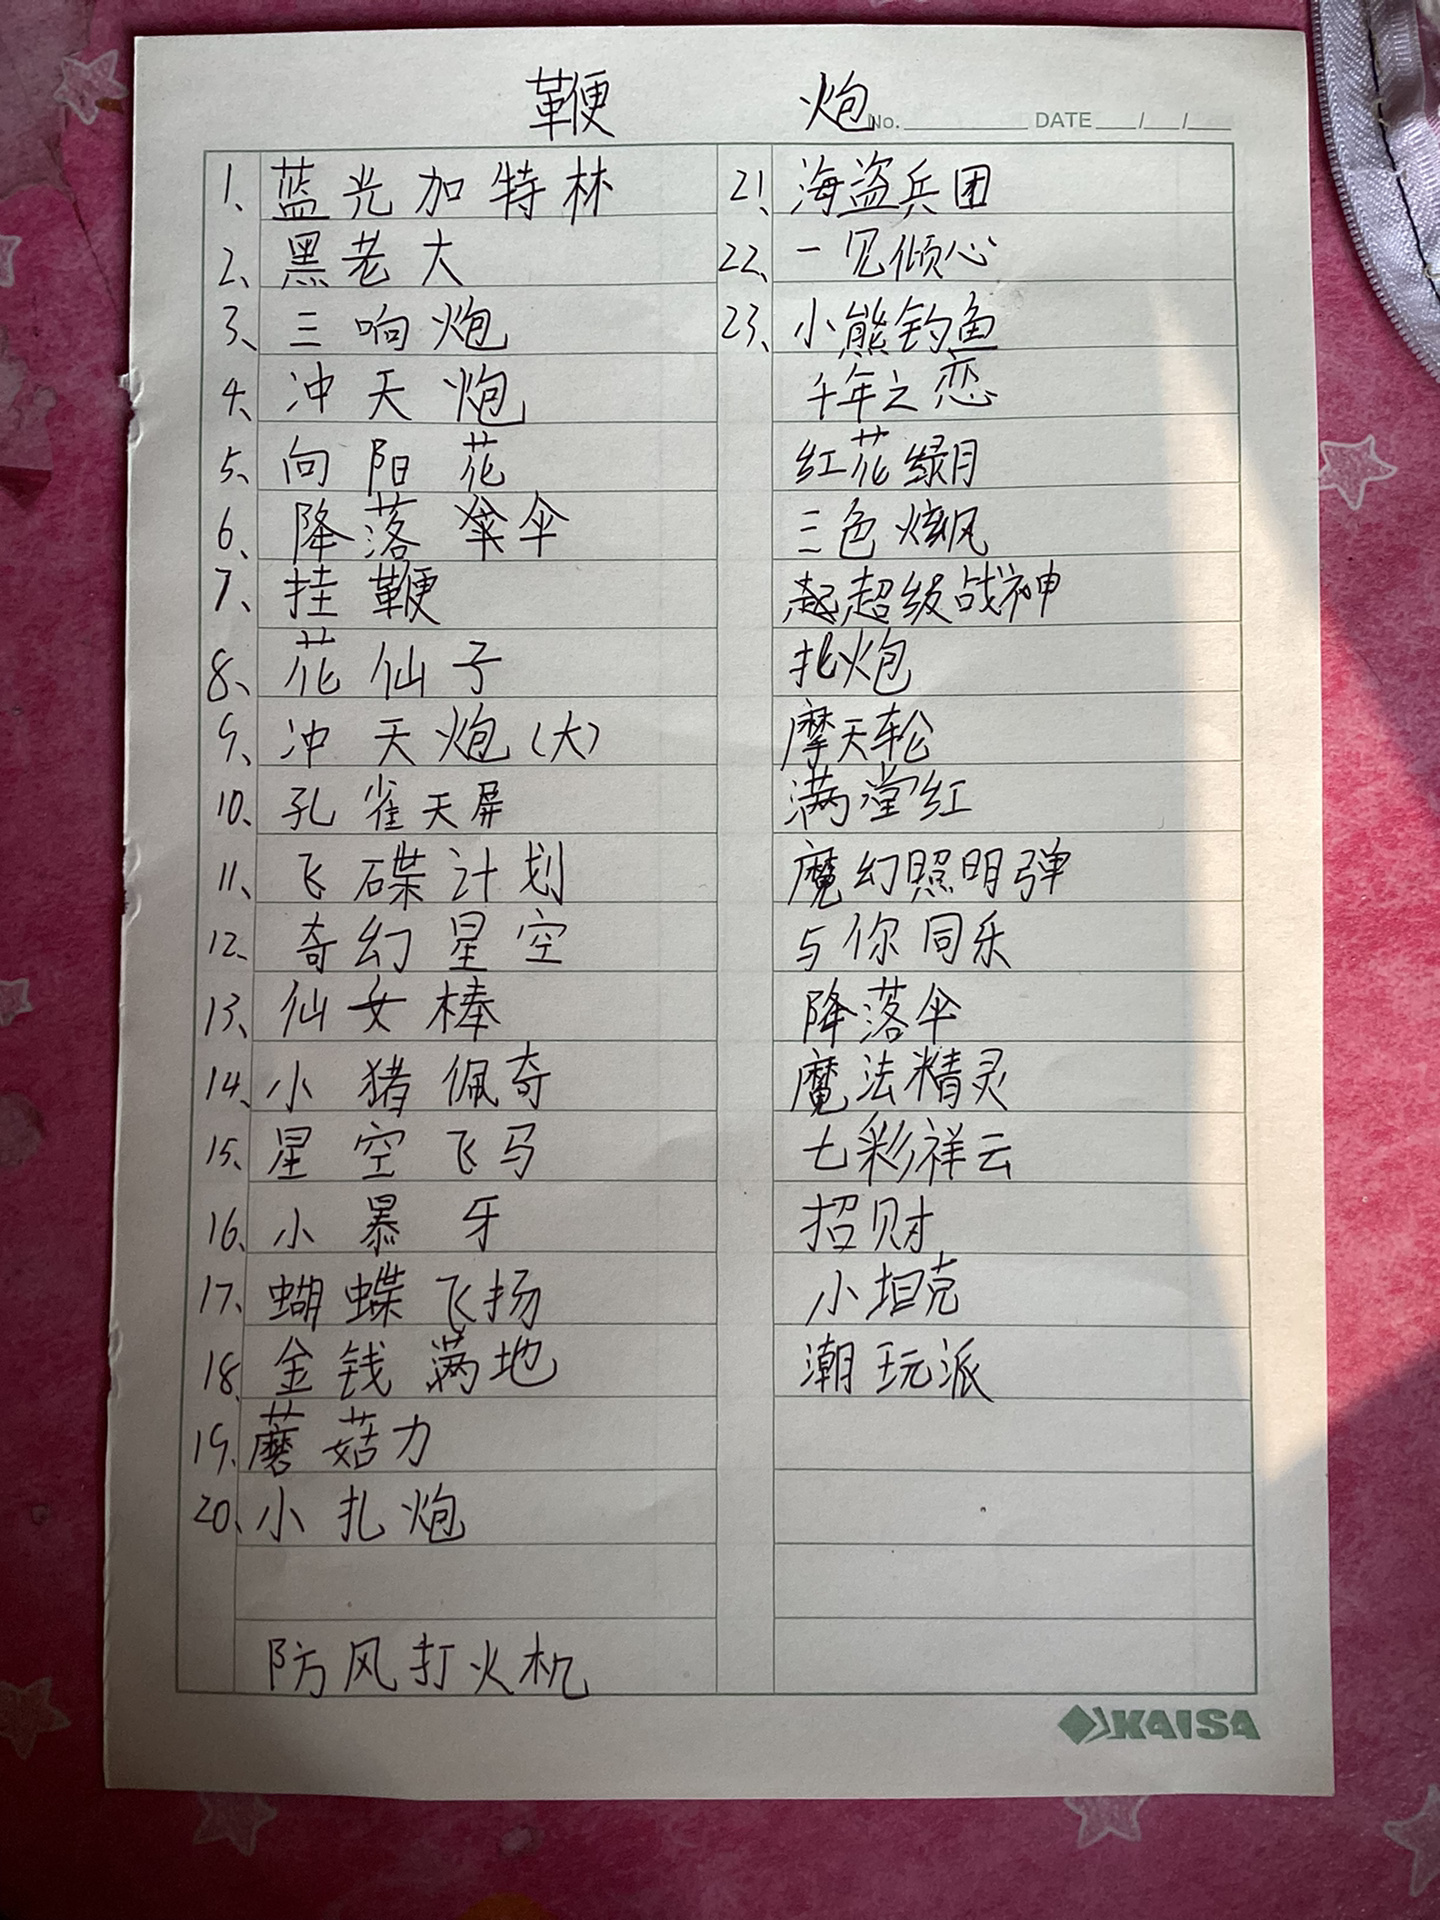 鞭 炮
No. DATE / /
1、蓝光加特林
2、黑老大
3、三响炮
4、冲天炮
5、向阳花
6、降落伞
7、挂鞭
8、花仙子
9、冲天炮(大)
10、孔雀天屏
11、飞碟计划
12、奇幻星空
13、仙女棒
14、小猪佩奇
15、星空飞马
16、小暴牙
17、蝴蝶飞扬
18、金钱满地
19、蘑菇力
20、小扎炮
防风打火机
21、海盗兵团
22、一见倾心
23、小熊钓鱼
千年之恋
红花绿月
三色炫风
超级战神
扎炮
摩天轮
满堂红
魔幻照明弹
与你同乐
降落伞
魔法精灵
七彩祥云
招财
小坦克
潮玩派
KAISA